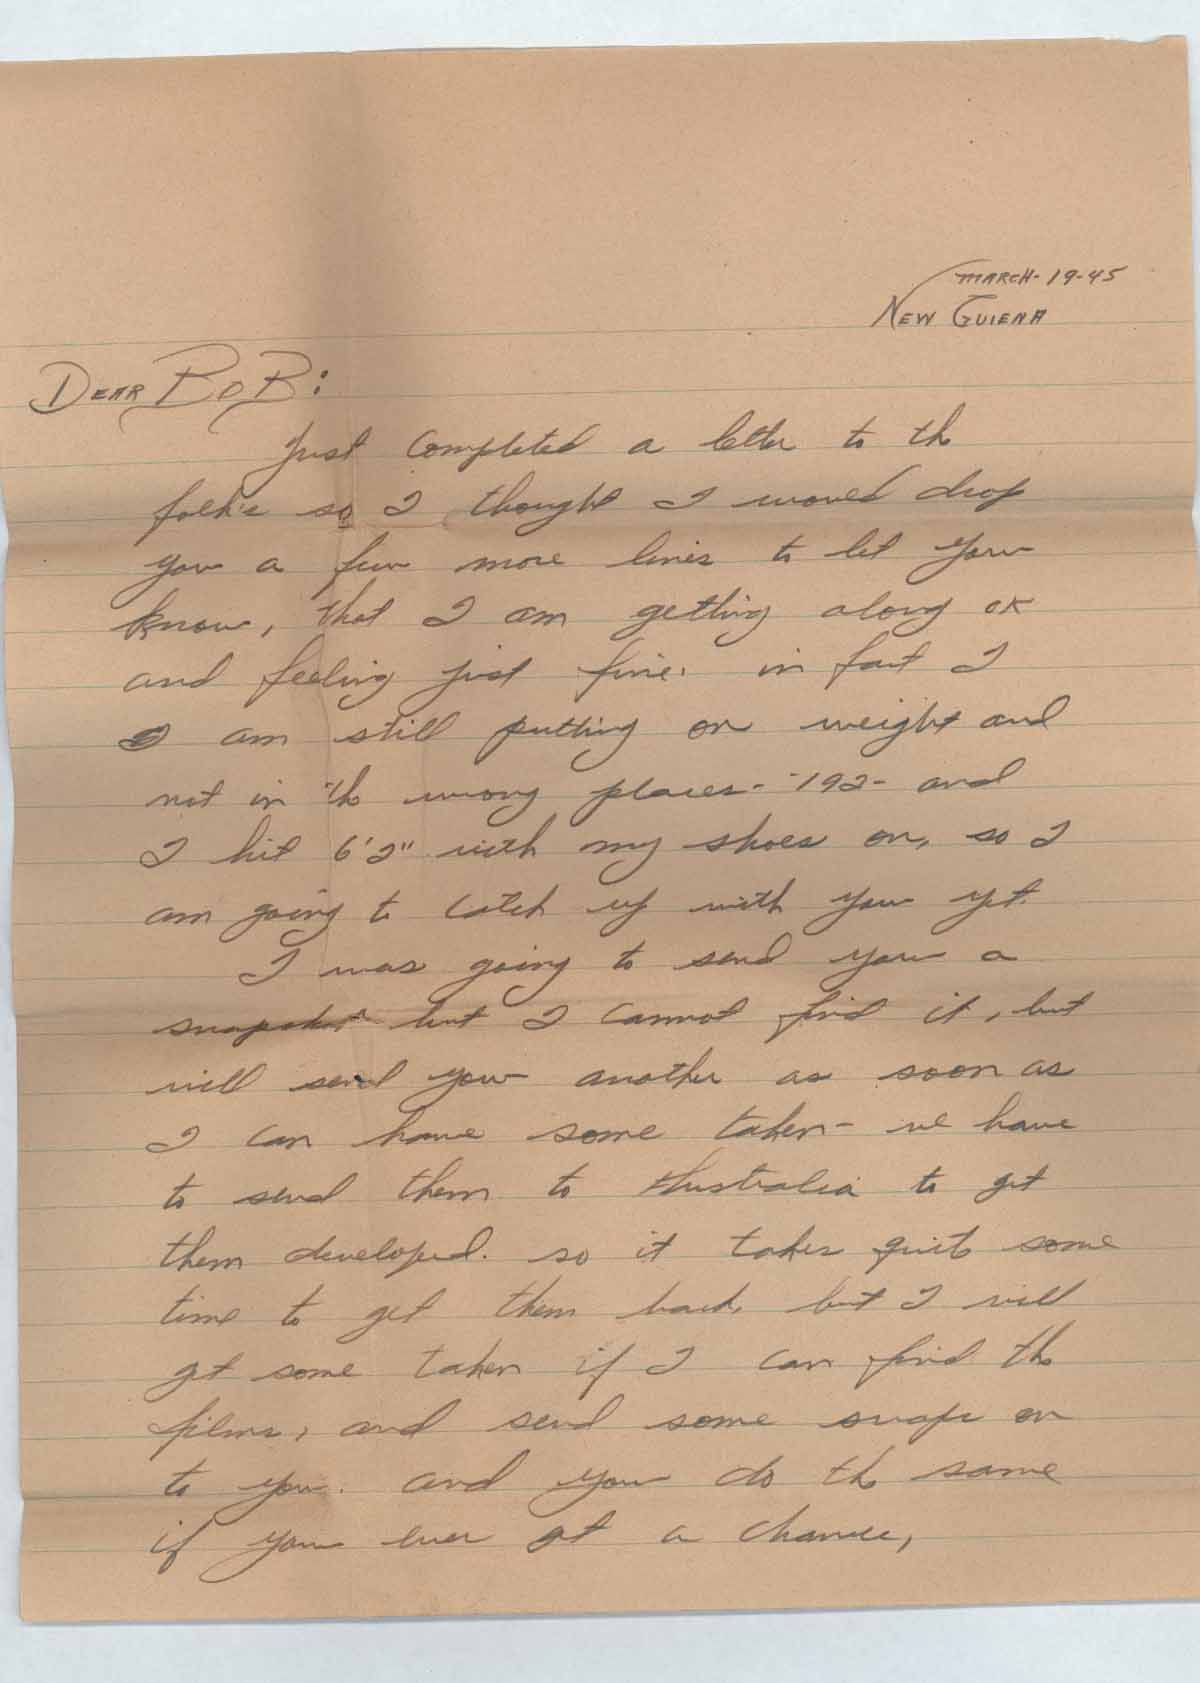 MARCH-19-45
NEW GUIENA
DEAR BOB:
Just completed a letter to the
folk's so I thought I would drop
you a few more lines to let you
know, that I am getting along OK
and feeling just fine. in fact I
I am still putting on weight and
not in the wrong places - 192 - and
I hit 6'2" with my shoes on, so I
am going to catch up with you yet.
I was going to send you a
snapshot but I cannot find it, but
will send you another as soon as
I can have some taken - we have
to send them to Australia to get
them developed. so it takes quite some
time to get them back, but I will
get some taken if I can find the
films, and send some snaps on
to you. and you do the same
if you ever get a chance,